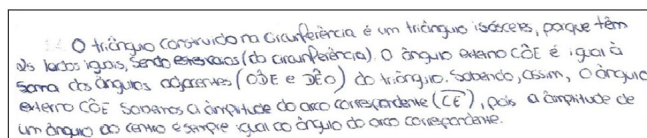 O triângulo construído na circunferência é um triângulo isósceles, porque têm
dois lados iguais, sendo estes raios (da circunferência). O ângulo externo CÔE é igual à
soma dos ângulos adjacentes (OD̂E e DÊO) do triângulo. Sabendo, assim, o ângulo
externo CÔE sabemos a amplitude do arco correspondente (CE), pois a amplitude de
um ângulo ao centro é sempre igual ao ângulo do arco correspondente.